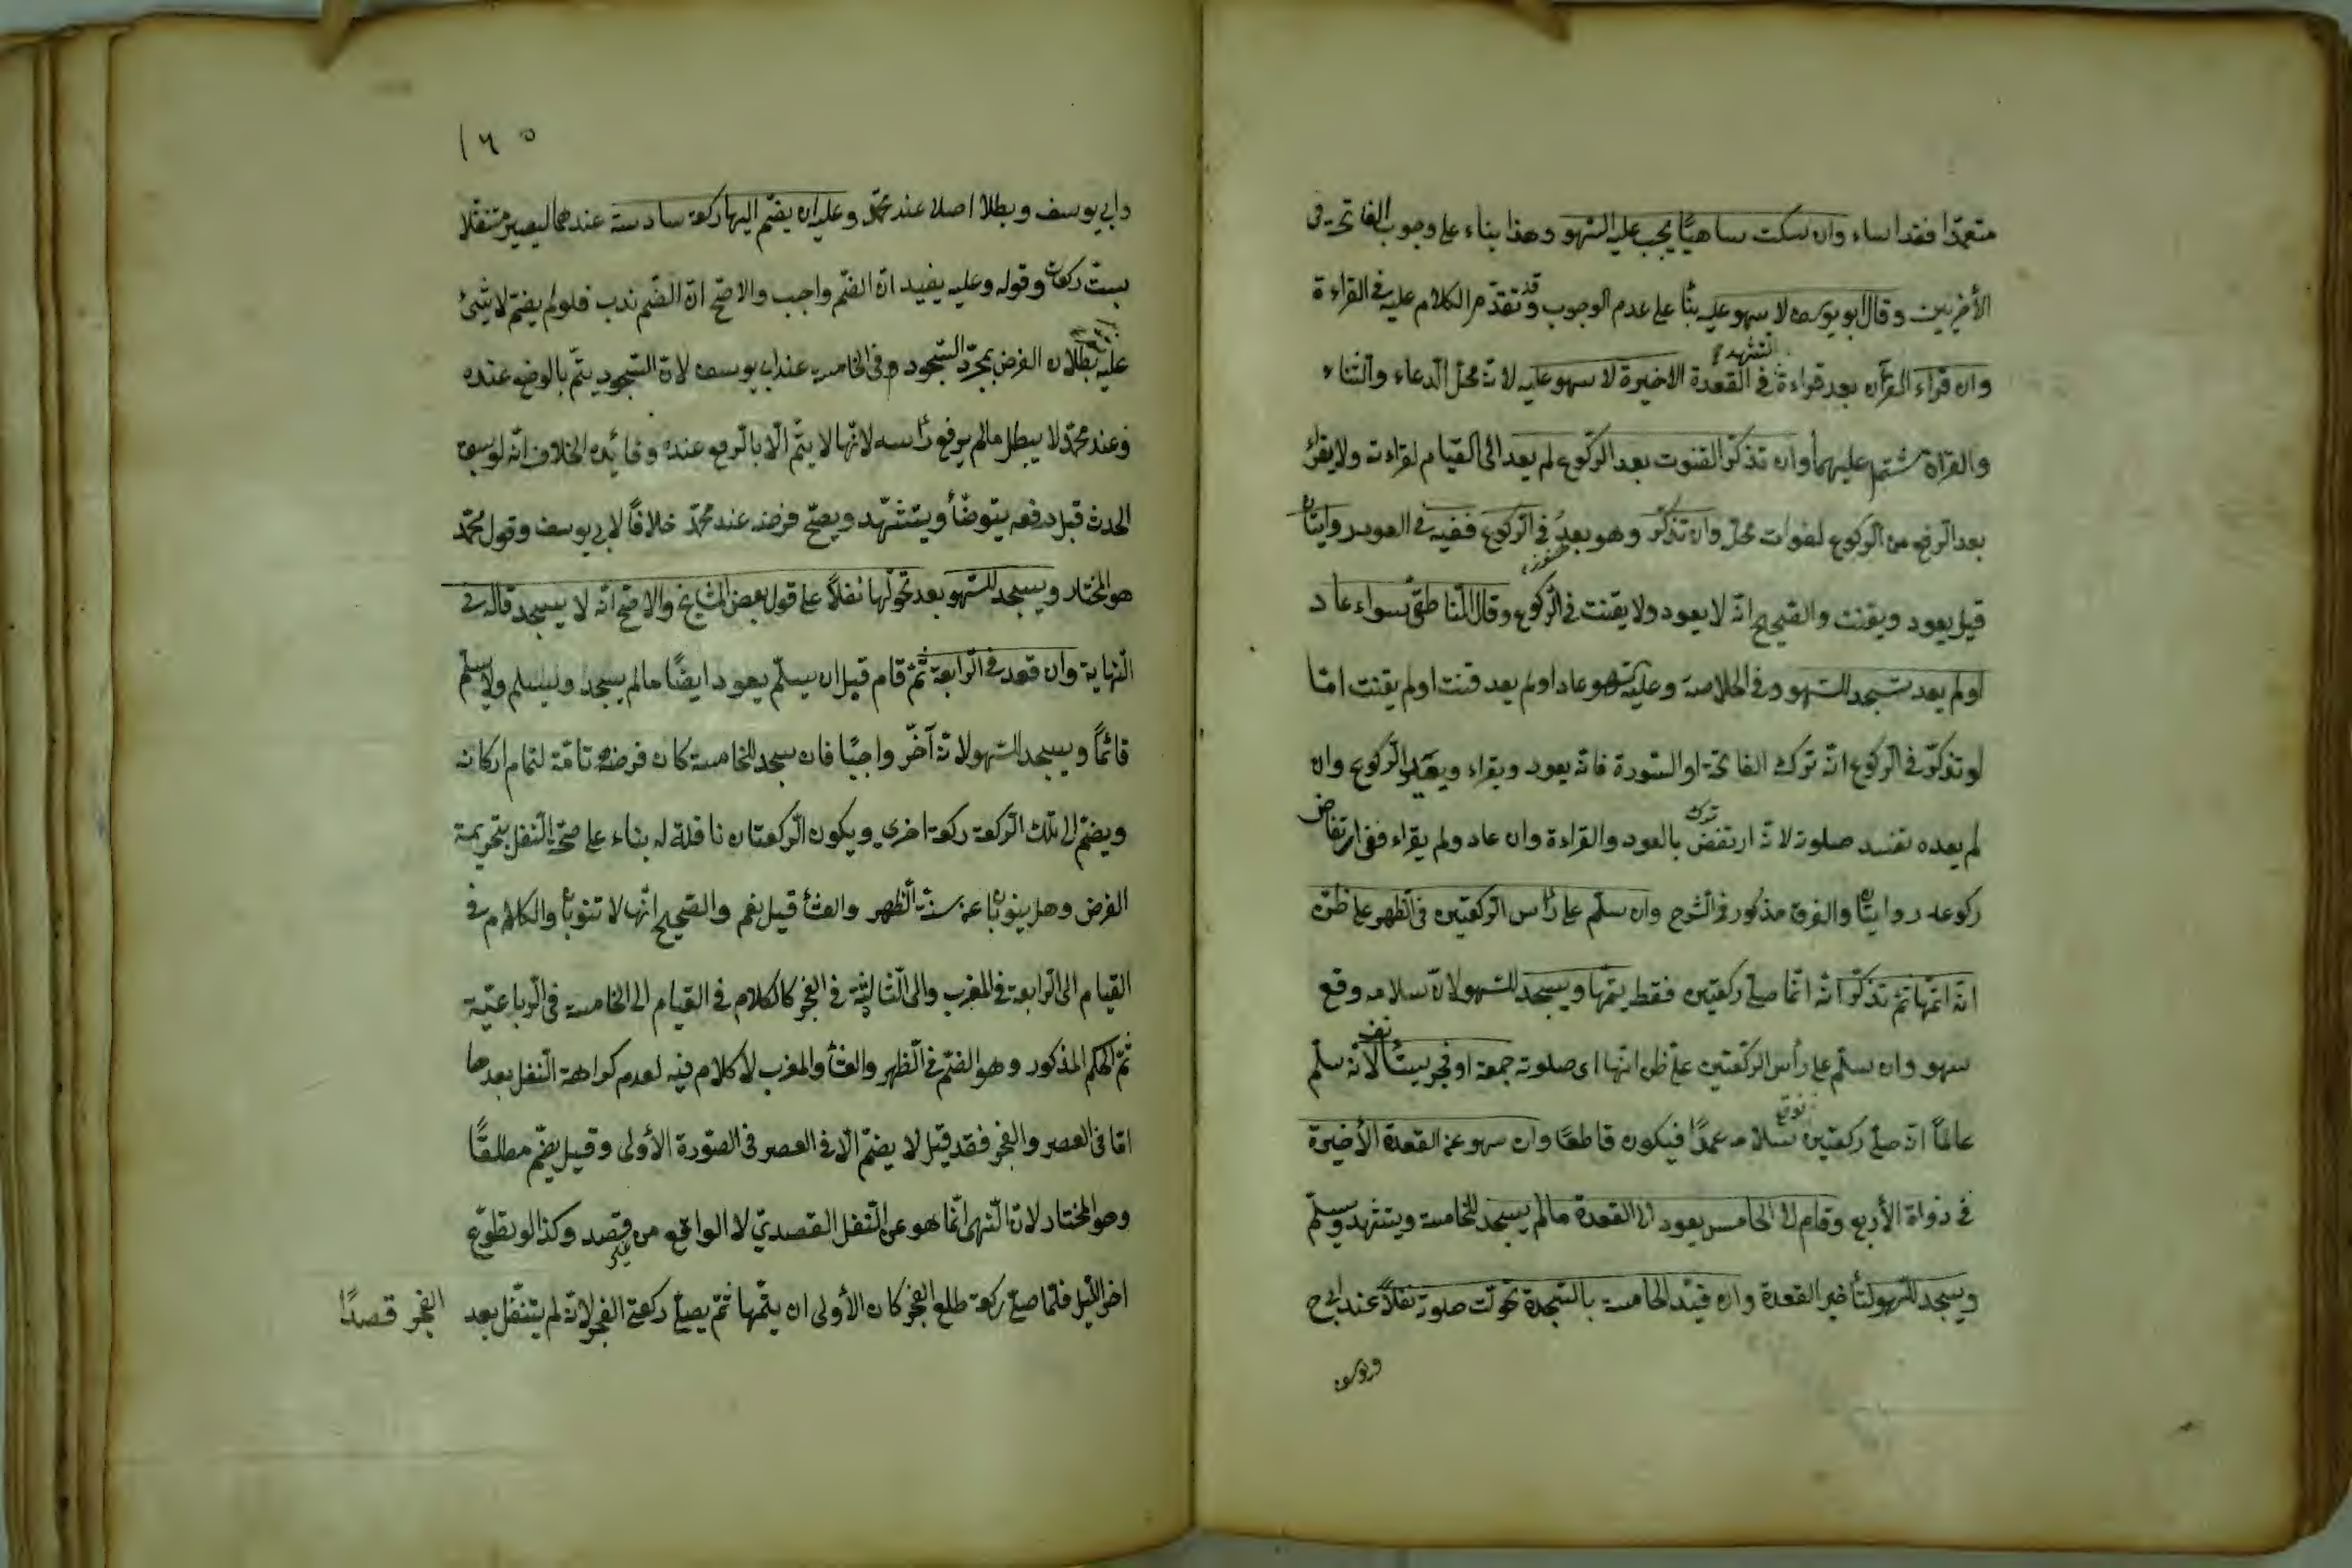 متعمّدا فقد اساء وان سكت ساهيًا يجب عليه السّهو وهذا بناء على وجوب الفاتحة في
الأخريين وقال ابو يوسف لا سهو عليه بنًا على عدم الوجوب وقد تقدّم الكلام عليه في القراءة
وان قراء القرآن بعد قراءة التشهد في القعدة الاخيرة لا سهو عليه لانّه محلّ الدعاء والثناء
والقرآن مشتمل عليهما وان تذكّر القنوت بعد الركوع لم يعد الى القيام لقراءته ولا يقراء
بعد الرفع من الركوع لفوات محلّه وان تذكّر وهو بعدُ في الركوع ففيه في العود روايتان
قيل يعود ويقنت والصّحيح انّه لا يعود ولا يقنت في الركوع وقال النّاطفي سواء عاد
اولم يعد تسجد للسّهو وفي الخلاصة وعليه السّهو عاد اولم يعد قنت اولم يقنت امّا
لو تذكّر في الركوع انّه ترك الفاتحة او السّورة فانّه يعود ويقراء ويعيد الركوع وان
لم يعده تفسد صلوته لانّه ارتفض بالعود والقراءة وان عاد ولم يقراء ففي ارتفاض
ركوعه روايتان والفرق مذكور في الشرح وان سلّم على رأس الركعتين في الظهر على ظنّ
انّه اتمّها ثمّ تذكّر انّه انّما صلّى ركعتين فقط يتمّها ويسجد للسّهو لانّ سلامه وقع
سهو وان سلّم على رأس الركعتين على ظن انّها اى صلوته جمعة او فجر يستأنف لانّه سلّم
عالمًا انّه صلّى ركعتين فوقع سلامه عمدًا فيكون قاطعًا وان سهو عن القعدة الأخيرة
في ذواة الأربع وقام الى الخامس يعود الى القعدة مالم يسجد للخامسة ويتشهد ويسلّم
ويسجد للسّهو لتأخير القعدة وان قيّد الخامسة بالسّجدة تحوّلت صلوته نفلاً عند ابي ح
وابي يوسف
١٦٥
وابي يوسف وبطلا اصلا عند محمّد وعليه ان يضمّ اليها ركعة سادسة عندهما ليصير متنفّلا
بستّ ركعات وقوله وعليه يفيد انّ الضّم واجب والاصحّ انّ الضّم ندب فلولم يضمّ لا شئ
عليه بطلان الفرض بمجرّد السّجود في الخامسة عند ابي يوسف لانّ السّجود يتمّ بالوضع عنده
وعند محمّد لا يبطل مالم يرفع رأسه لانّها لا يتمّ الّا بالرفع عنده وفائده الخلاف انّه لو سبقه
الحدث قبل رفعه يتوضّأ ويتشهّد ويصحّ فرضه عند محمّد خلافًا لابي يوسف وقول محمّد
هو المختار ويسجد للسّهو بعد تحوّلها نفلاً على قول بعض المشايخ والاصحّ انّه لا يسجد قاله في
النّهاية وان قعد في الرّابعة ثمّ قام قبل ان يسلّم يعود ايضًا مالم يسجد وليسلم ولا يسلّم
قائمًا ويسجد للسّهو لانّه آخّر واجبًا فان سجد للخامسة كان فرضه تامّة لتمام اركانه
ويضمّ الى تلك الركعة ركعة اخرى ويكون الركعتان نافلة له بناء على صحّة النّفل بتحريمة
الفرض وهل ينوبان عن سنّة الظهر والعشأ قيل نعم والصّحيح انّها لا تنوبان والكلام في
القيام الى الرّابعة في المغرب والى الثالثة في الفجر كالكلام في القيام الى الخامسة في الرباعيّة
ثمّ الحكم المذكور وهو الضّم في الظهر والعشأ والمغرب لا كلام فيه لعدم كراهة النّفل بعدها
امّا في العصر والفجر فقد قيل لا يضمّ الّا في العصر في الصّورة الأولى وقيل يضّم مطلقًا
وهو المختار لانّ النّهى انّما هو عن التّنفل القصديّ لا الواقع من غير قصد وكذا لو تطوّع
اخر اللّيل فلمّا صلّى ركعة طلع الفجر كان الأولى ان يتمّها ثمّ يصلّى ركعتي الفجر لانّه لم يتنفّل بعد الفجر قصدًا